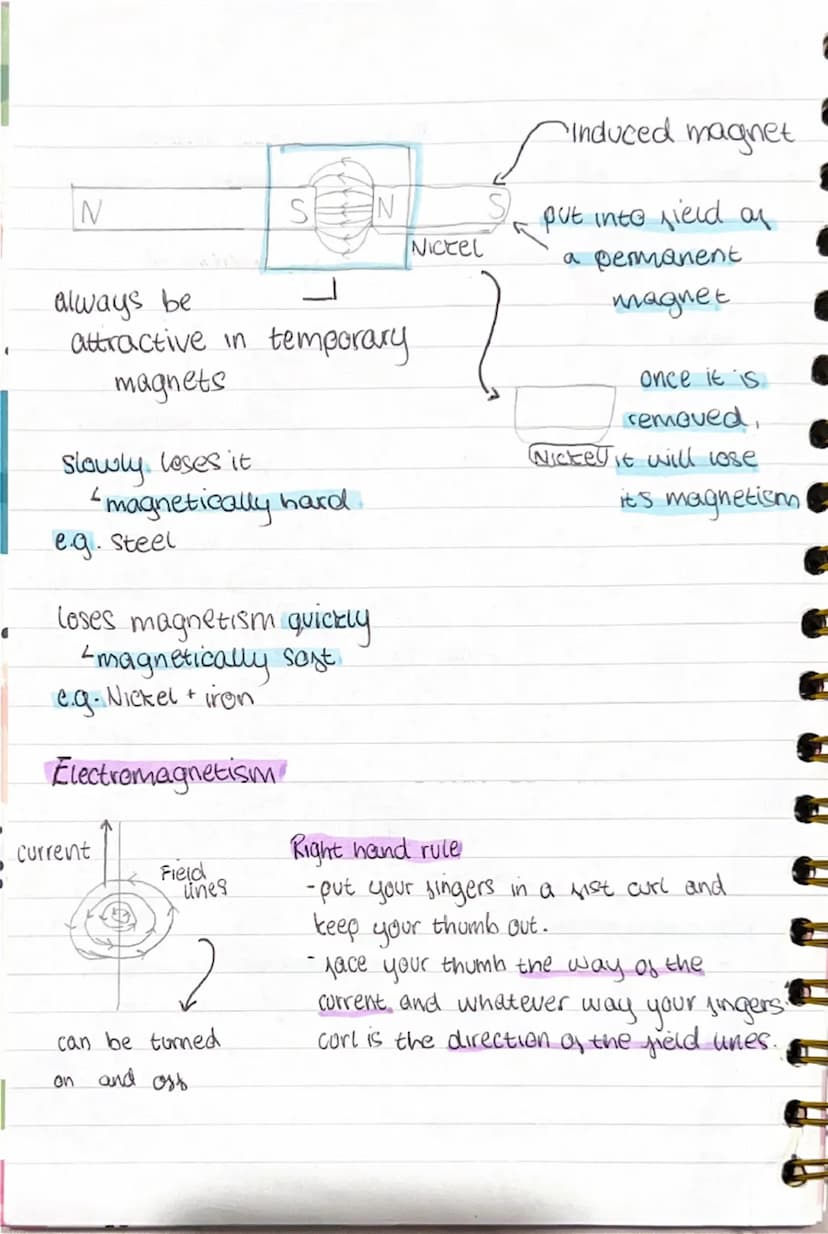 Induced magnet
N S N S
Nickel
put into field of
a permanent
magnet
always be
attractive in temporary
magnets
once it is
removed,
Nickel it will lose
its magnetism
slowly loses it
magnetically hard
e.g. steel
loses magnetism quickly
magnetically soft
e.g. Nickel + iron
Electromagnetism
current
Field
lines
can be turned
on and off
Right hand rule
- put your fingers in a fist curl and
keep your thumb out.
- face your thumb the way of the
current and whatever way your fingers
curl is the direction of the field lines.